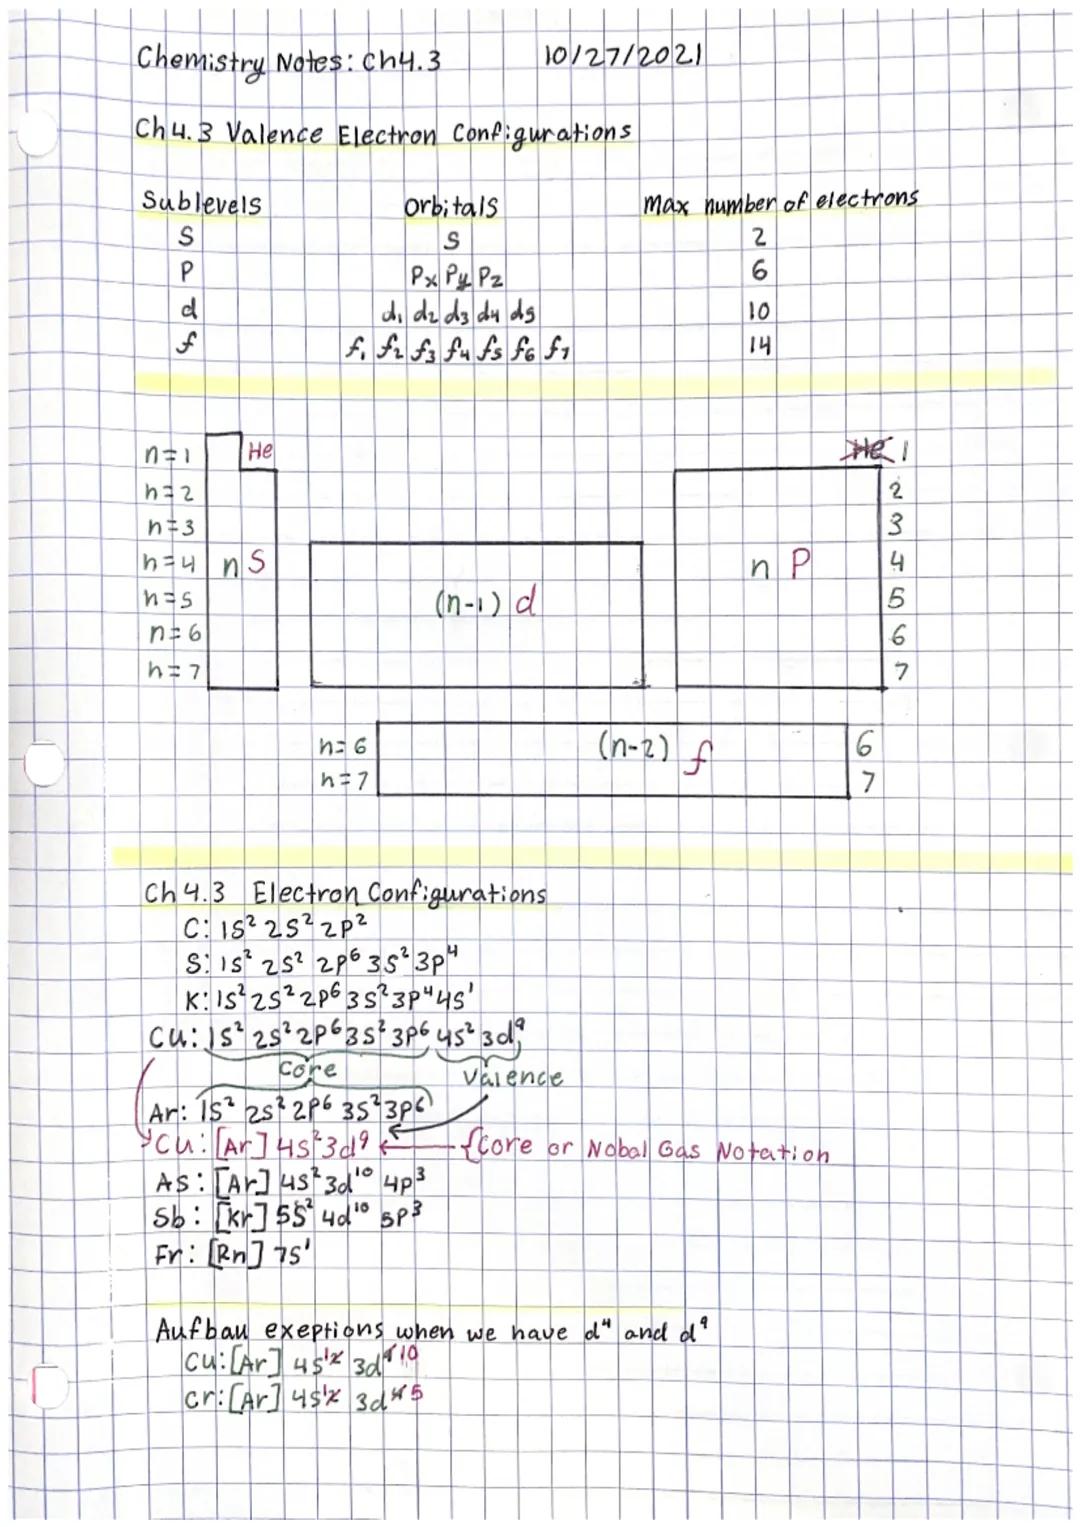 Chemistry Notes: Ch4.3 10/27/2021
Ch 4.3 Valence Electron Configurations
Sublevels orbitals Max number of electrons
S S 2
P Px Py Pz 6
d d₁ d₂ d₃ d₄ d₅ 10
f f₁ f₂ f₃ f₄ f₅ f₆ f₇ 14
n=1 He He 1
n=2 2
n=3 3
n=4 nS n P 4
n=5 (n-1) d 5
n=6 6
n=7 7
n=6 (n-2) f 6
n=7 7
Ch 4.3 Electron Configurations
C: 1S² 2S² 2P²
S: 1S² 2S² 2P⁶ 3S² 3P⁴
K: 1S² 2S² 2P⁶ 3S² 3P⁴ 4S¹
Cu: 1S² 2S² 2P⁶ 3S² 3P⁶ 4S² 3d⁹
Core Valence
Ar: 1S² 2S² 2P⁶ 3S² 3P⁶
Cu: [Ar] 4S² 3d⁹ {Core or Nobal Gas Notation
As: [Ar] 4S² 3d¹⁰ 4P³
Sb: [Kr] 5S² 4d¹⁰ 5P³
Fr: [Rn] 7S¹
Aufbau exeptions when we have d⁴ and d⁹
Cu: [Ar] 4S¹² 3d⁹¹⁰
Cr: [Ar] 4S¹² 3d⁴⁵